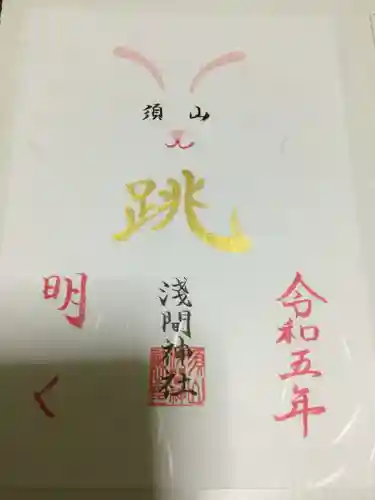 須山
跳
令和五年
淺間神社
明く